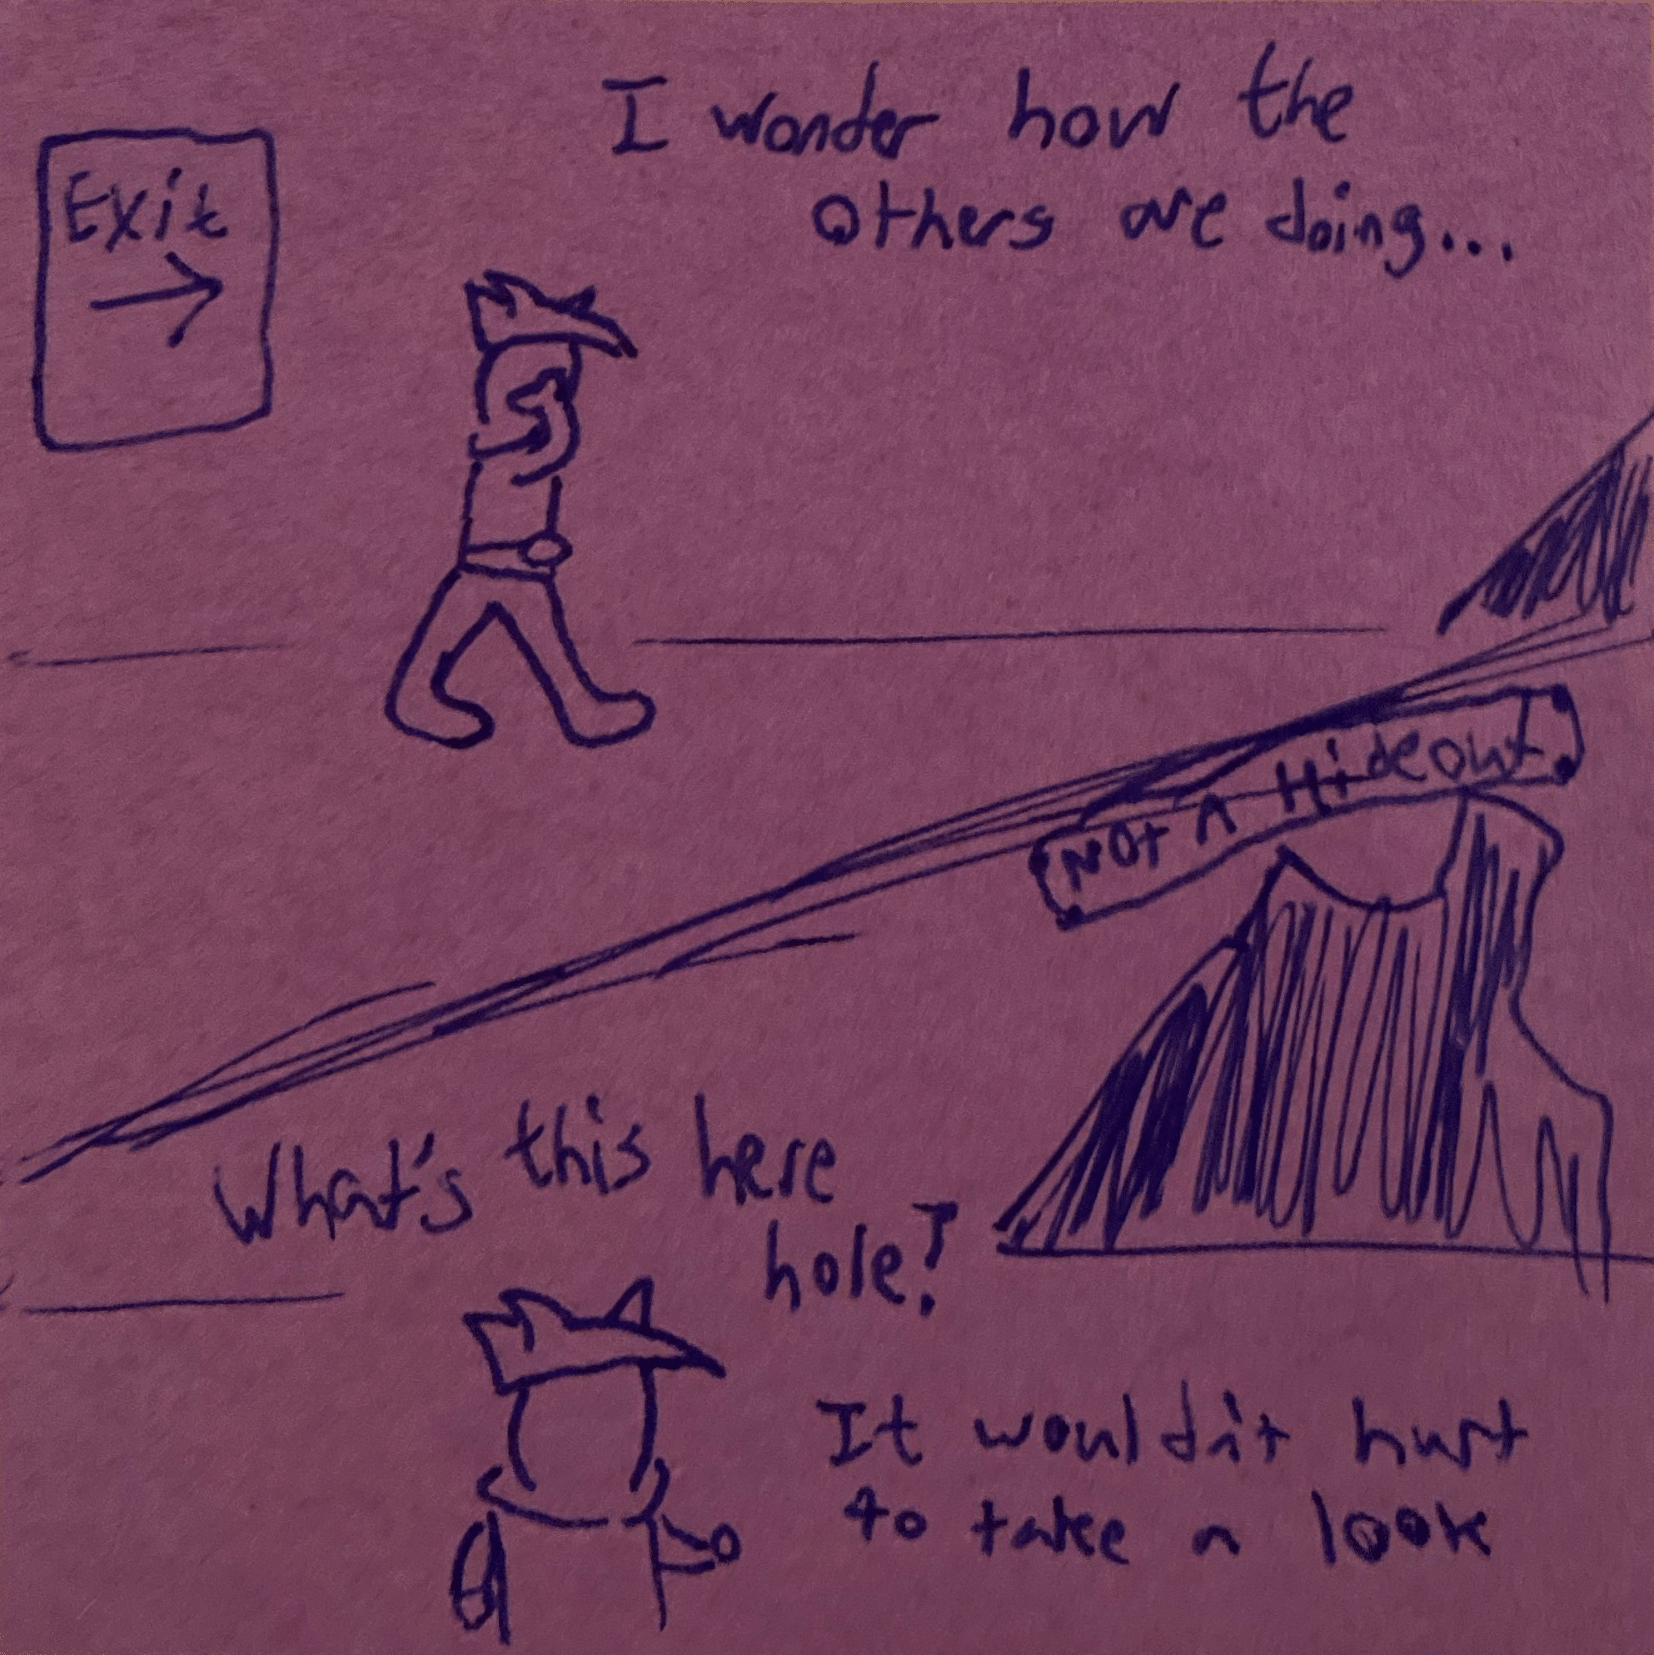 I wonder how the
others are doing...
Exit
Not A Hideout
What's this here
hole?
It wouldn't hurt
to take a look